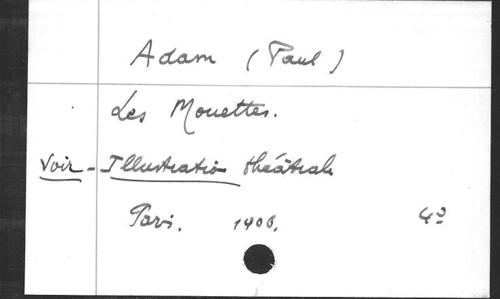 Adam (Paul)
Les Mouettes.
Voir - Illustration théâtrale
Paris. 1906. 4º